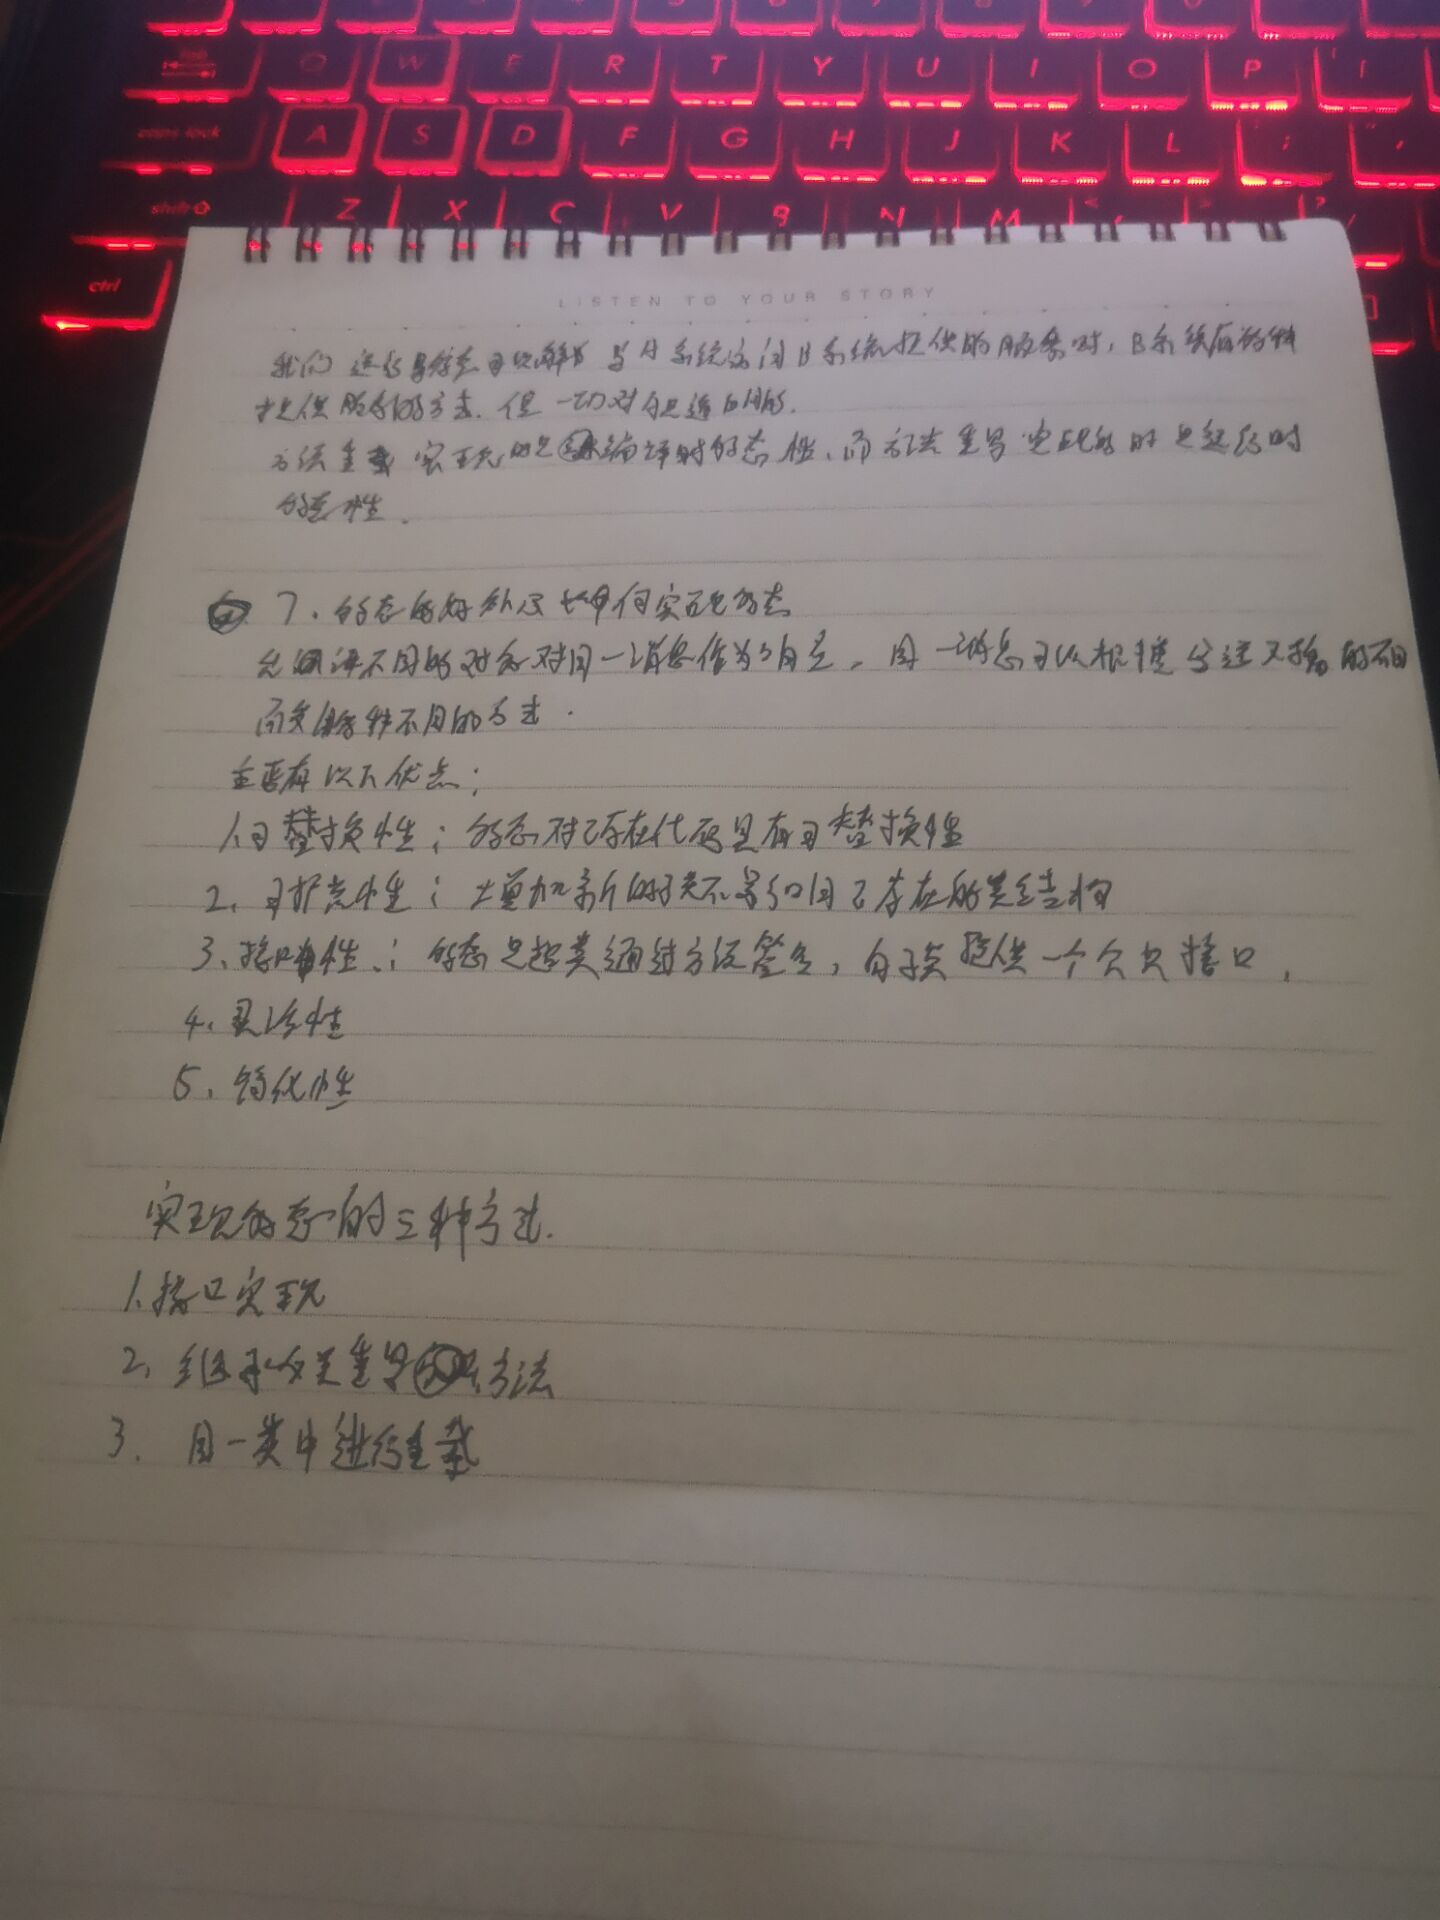 tab Q W E R T Y U I O P [
caps lock A S D F G H J K L ; '
shift Z X C V B N M < ? /
ctrl
LISTEN TO YOUR STORY
我们 运行 多态可以解释 当A系统访问B系统提供的服务时，B系统有多种
提供服务的方式．但一切对A是透明的．
方法重载实现的是编译时多态性，而方法重写实现的时是运行时
多态性．
7．多态的好处及如何实现多态
允许不同的对象对同一消息作为响应．同一消息可以根据发送对象的不同
而采用多种不同的方式．
主要有以下优点：
1、可替换性：多态对已存在代码具有可替换性
2、可扩充性：增加新的子类不影响已存在的类结构
3、接口性：多态是超类通过方法签名，向子类提供一个公共接口．
4、灵活性
5、简化性
实现多态的三种方式．
1、接口实现
2、继承父类重写方法
3．同一类中进行重载